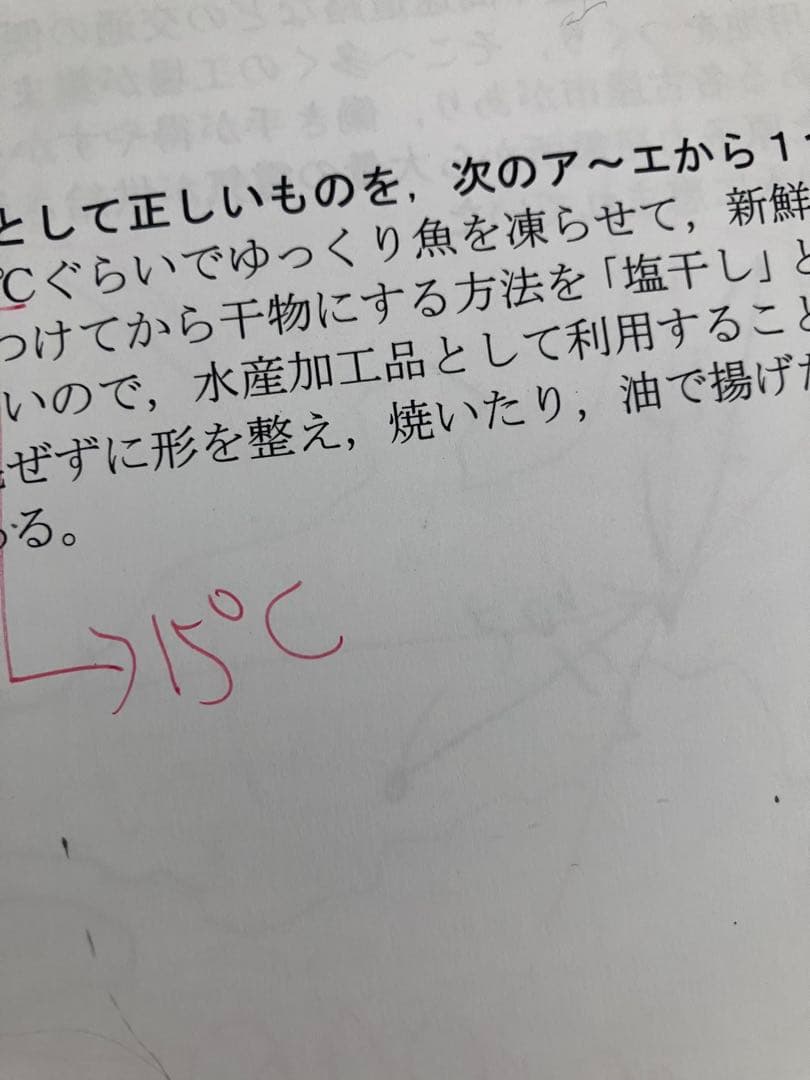 として正しいものを，次のア～エから1
℃ぐらいでゆっくり魚を凍らせて，新鮮
つけてから干物にする方法を「塩干し」と
いので，水産加工品として利用すること
ぜずに形を整え，焼いたり，油で揚げた
る。
15℃